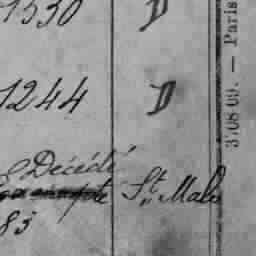 1530 D
1244 D
Décédé
St. Malo
85
37.08 09. — Paris